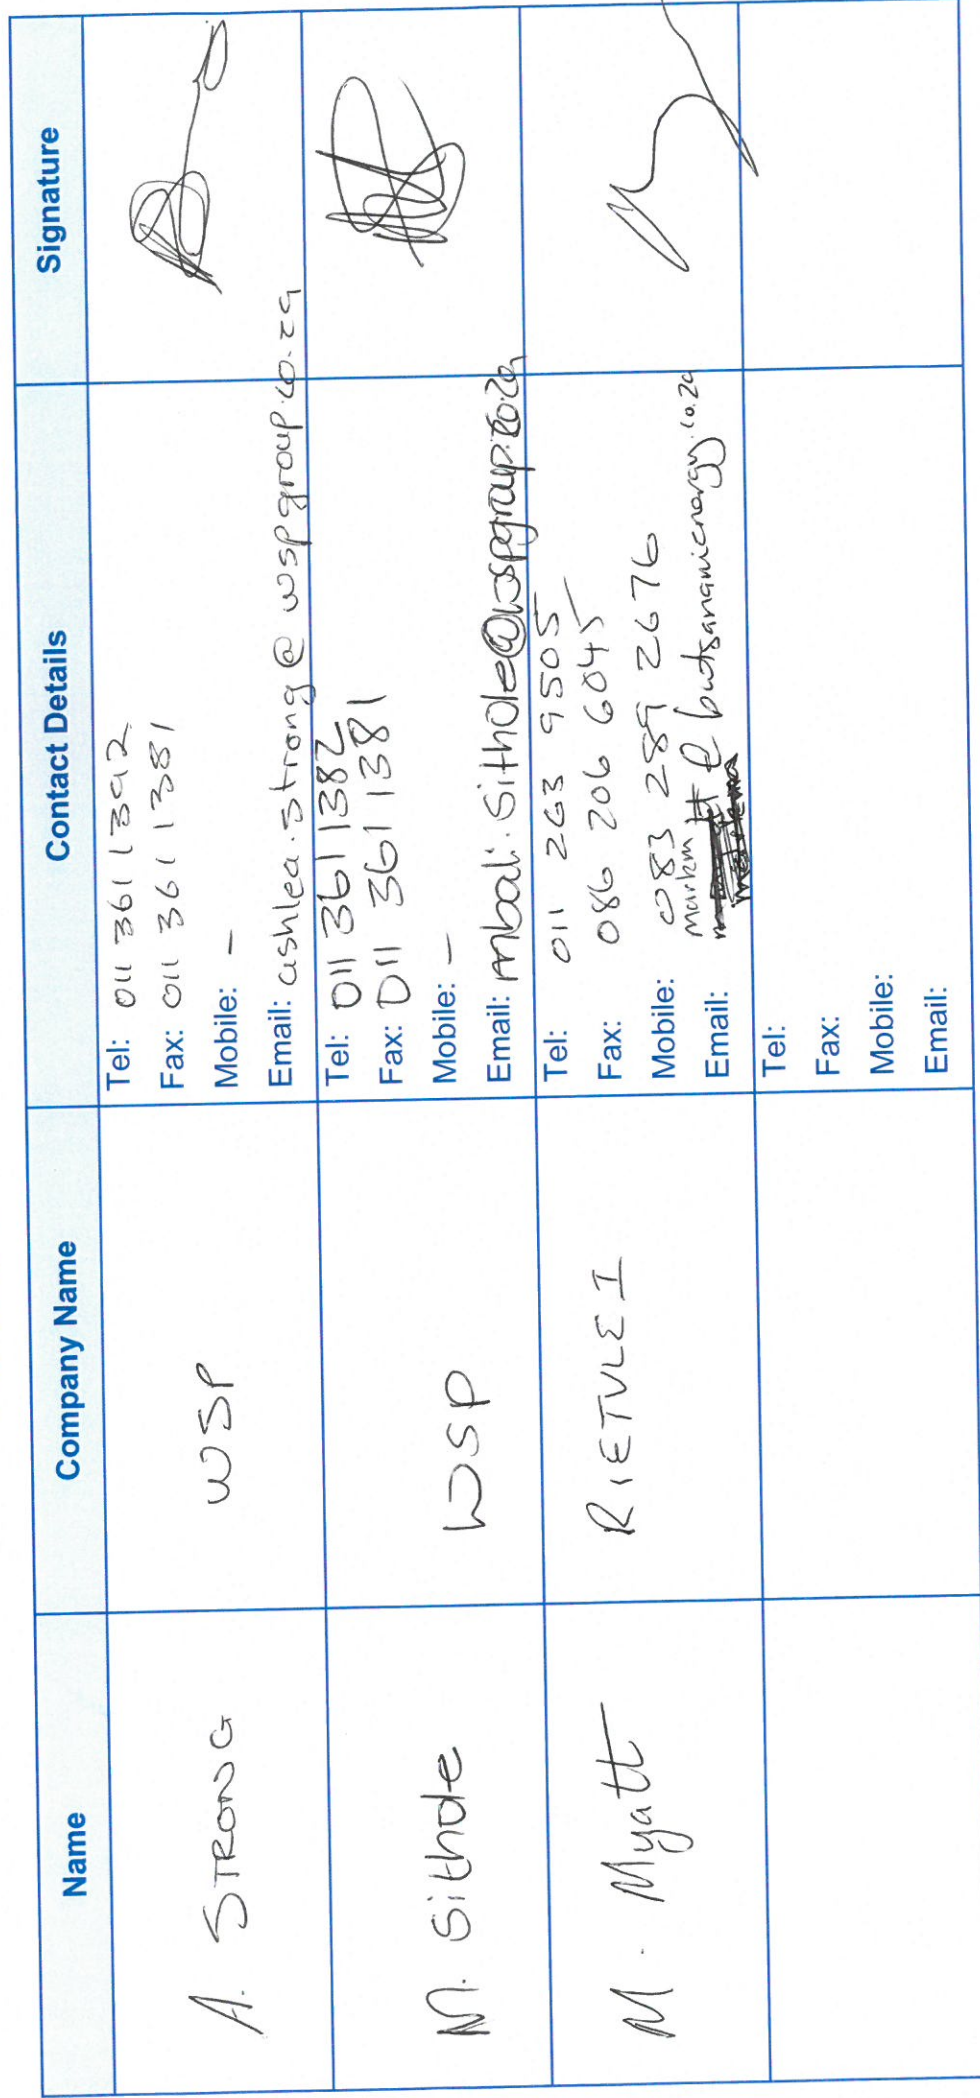 Name Company Name Contact Details Signature
A. STRONG WSP
Tel: 011 361 1392
Fax: 011 361 1381
Mobile: -
Email: ashlea.strong@wspgroup.co.za
M. Sithole WSP
Tel: 011 361 1382
Fax: 011 361 1381
Mobile: -
Email: mbali.sithole@wspgroup.co.za
M. Myatt RIETVLEI
Tel: 011 263 9505
Fax: 086 206 6045
Mobile: 083 289 2676
Email: markm@butsanamienergy.co.za
Tel:
Fax:
Mobile:
Email: